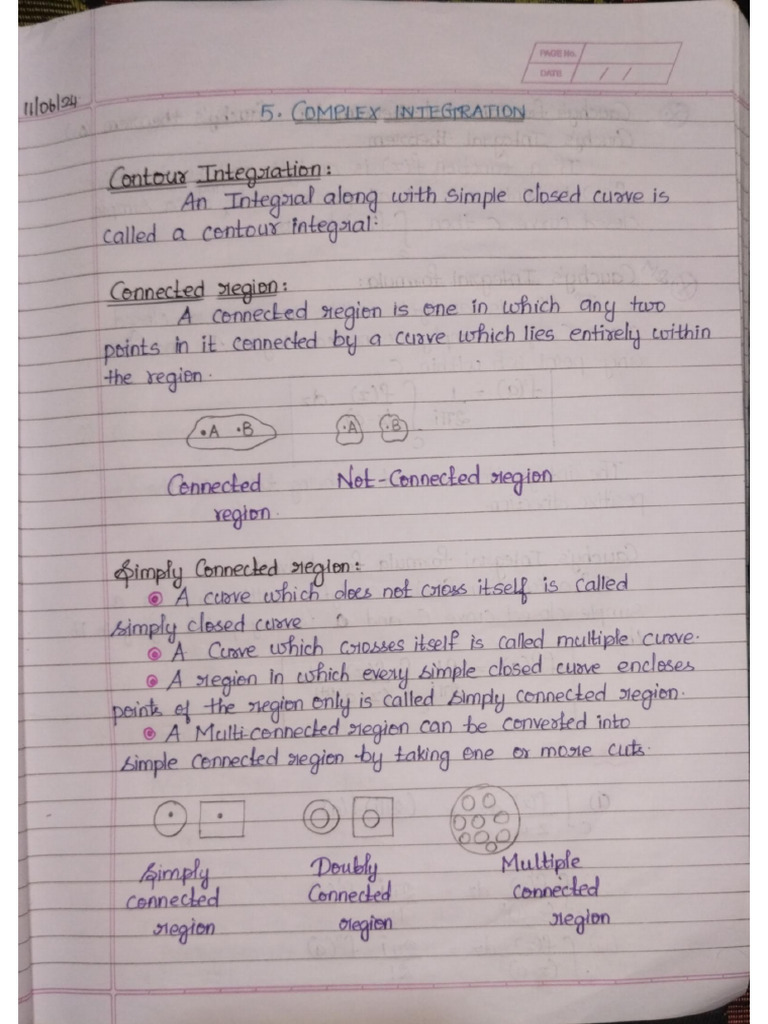 PAGE No.
DATE / /
11/06/24
5. COMPLEX INTEGRATION
Contour Integration:
An Integral along with simple closed curve is
called a contour integral.
Connected region:
A connected region is one in which any two
points in it connected by a curve which lies entirely within
the region.
.A .B .A .B
Connected Not-Connected region
region.
Simply Connected region:
A curve which does not cross itself is called
simply closed curve
A Curve which crosses itself is called multiple curve.
A region in which every simple closed curve encloses
points of the region only is called simply connected region.
A Multi-connected region can be converted into
simple connected region by taking one or more cuts.
Simply Doubly Multiple
connected Connected connected
region region region